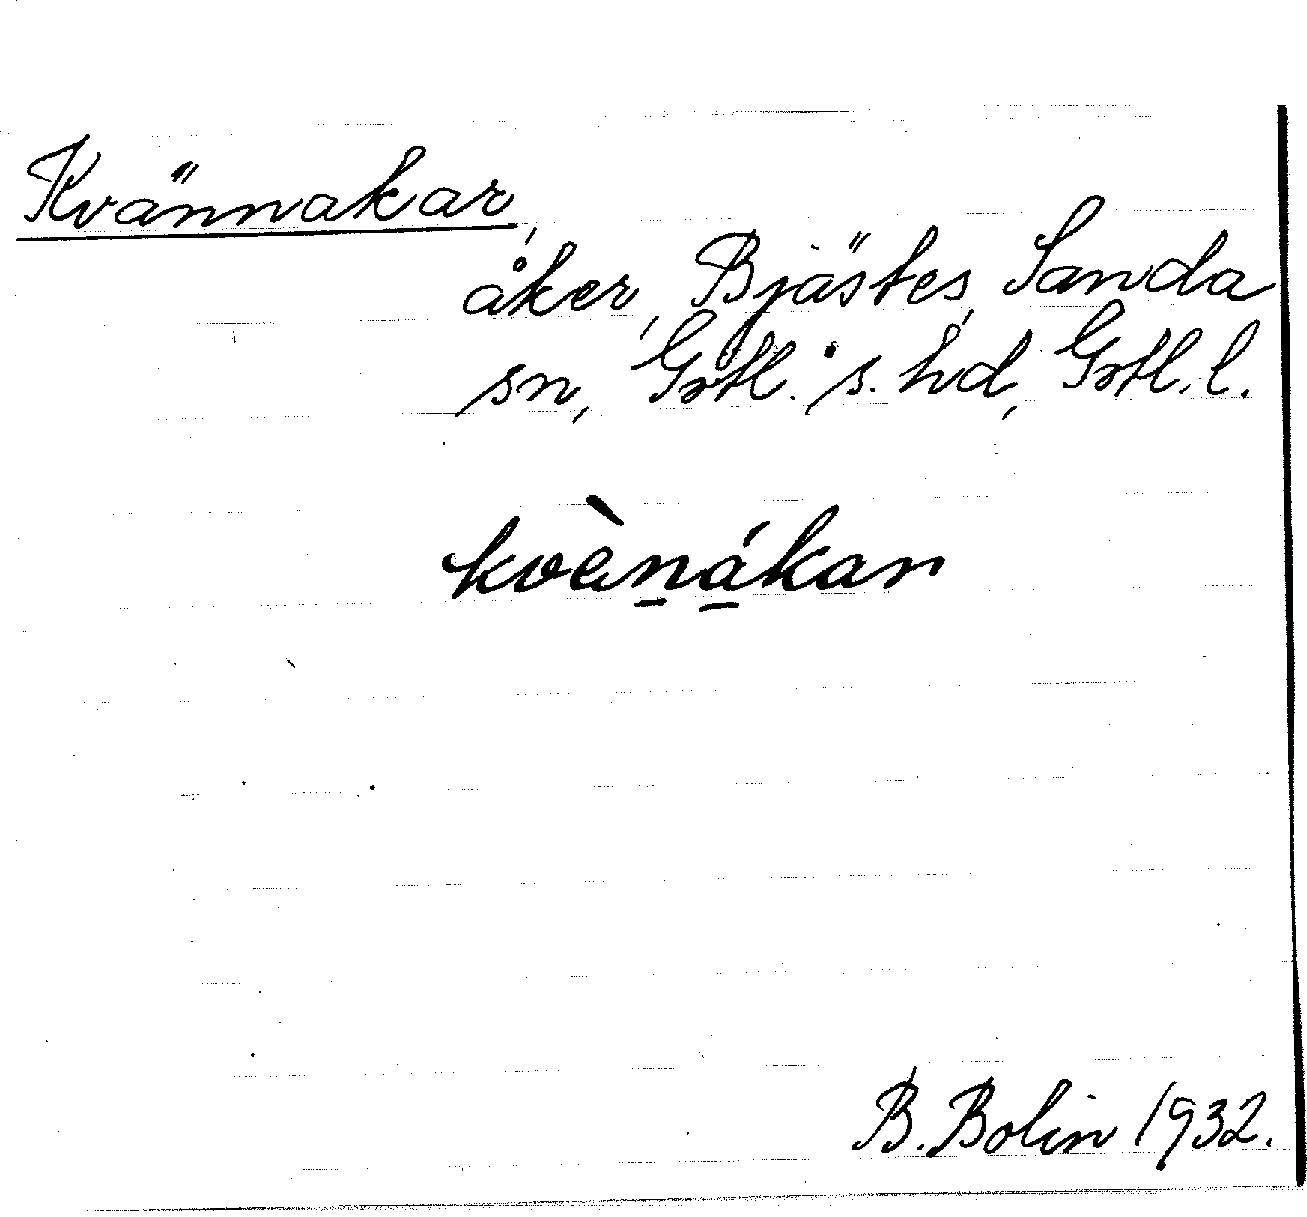 Kvännakar,
åker, Bjästes, Sanda
sn, Gotl. s. hd, Gotl. l.
kvèn̠á̠kar
B. Bolin 1932.